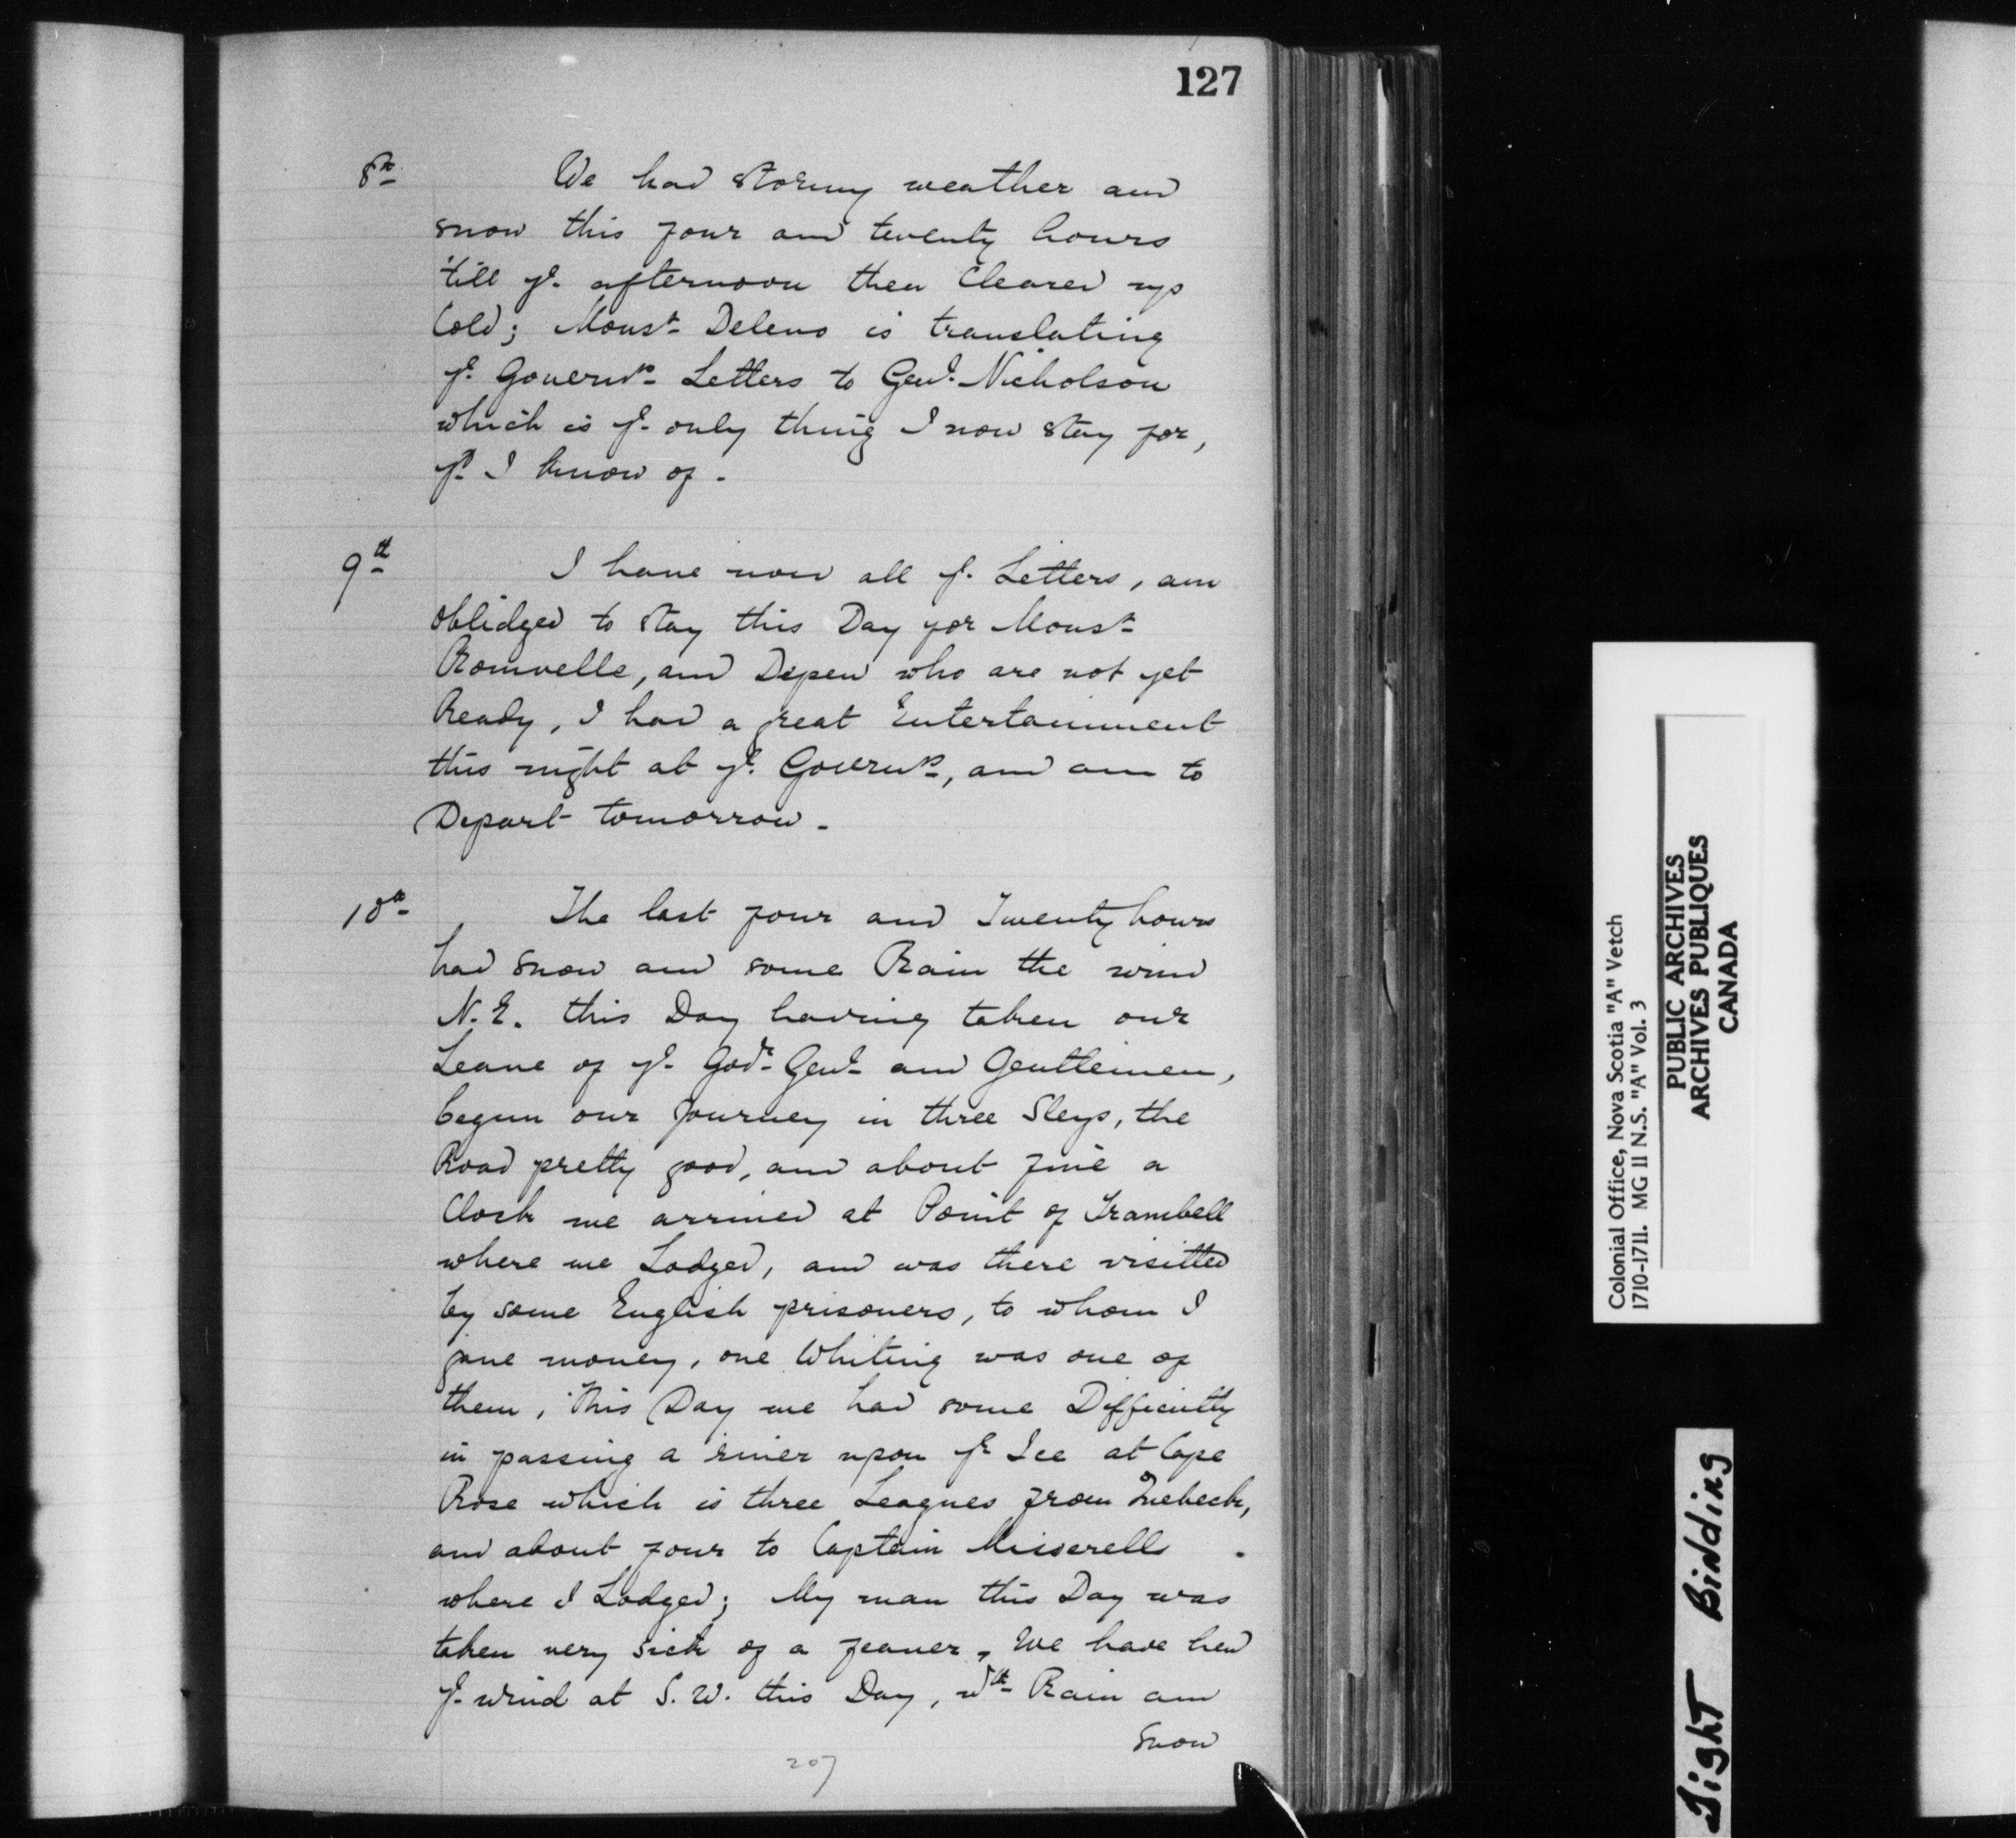 127
8th We had stormy weather and
snow this four and twenty hours
'till ye afternoon then Cleared up
Cold; Monsr Delens is translating
ye Governrs Letters to Genl. Nicholson
which is ye only thing I now stay for,
yt I know of.
9th I haue now all ye Letters, am
oblidged to stay this Day for Monsr
Romvelle, and Depen who are not yet
Ready, I had a great Entertainment
this night at ye Governrs, and am to
Depart tomorrow.
10th The last four and Twenty hours
had snow and some Rain the wind
N.E. this Day having taken our
Leaue of ye Govr Genl and Gentlemen,
begun our Journey in three Sleys, the
Road pretty good, and about fiue a
Clock we arriued at Point of Trambell
where we Lodged, and was there visitted
by some English prisoners, to whom I
gaue money, one Whiting was one of
them, This Day we had some Difficulty
in passing a riuer upon ye Ice at Cape
Rose which is three Leagues from Quebeck,
and about four to Captain Miserells
where I Lodged; My man this Day was
taken very sick of a feauer, We have hed
ye wind at S.W. this Day, wth Rain and
Snow
207
Colonial Office, Nova Scotia "A" Vetch
1710-1711. MG 11 N.S. "A" Vol. 3
PUBLIC ARCHIVES
ARCHIVES PUBLIQUES
CANADA
Tight Binding